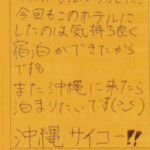 今回もこのホテルに
したのは気持ち良く
宿泊ができたから
です。
また沖縄に来たら
泊まりたいです(^^)
沖縄サイコー!!